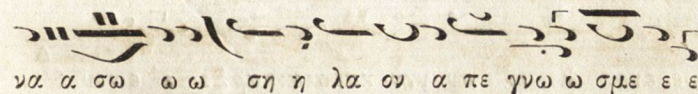 να α σω ω ω ση η λα ον α πε γνω ω σμε ε ε